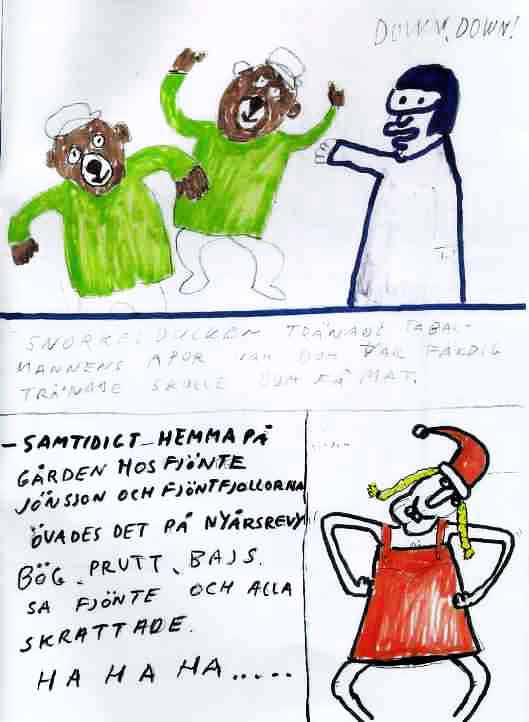 DOWN, DOWN!
SNORKELDUCKEN TRÄNADE
MANNENS APOR DOM VAR FÄRDIG
TRÄNADE SKULLE DOM FÅ MAT.
– SAMTIDIGT HEMMA PÅ
GÅRDEN HOS FJÖNTE
JÖNSSON OCH FJÖNTFJOLLORNA
ÖVADES DET PÅ NYÅRSREVY
BÖG, PRUTT, BAJS.
SA FJÖNTE OCH ALLA
SKRATTADE.
HA HA HA.....